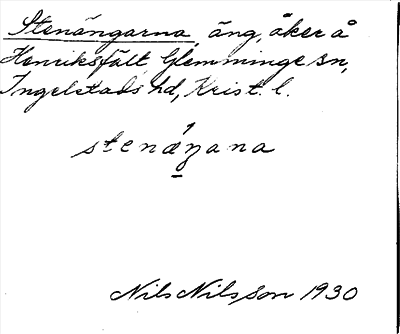 Stenängarna, äng, åker å
Henriksfält, Glemminge sn,
Ingelstads hd, Krist. l.
stenæ´ŋana
Nils Nilsson 1930